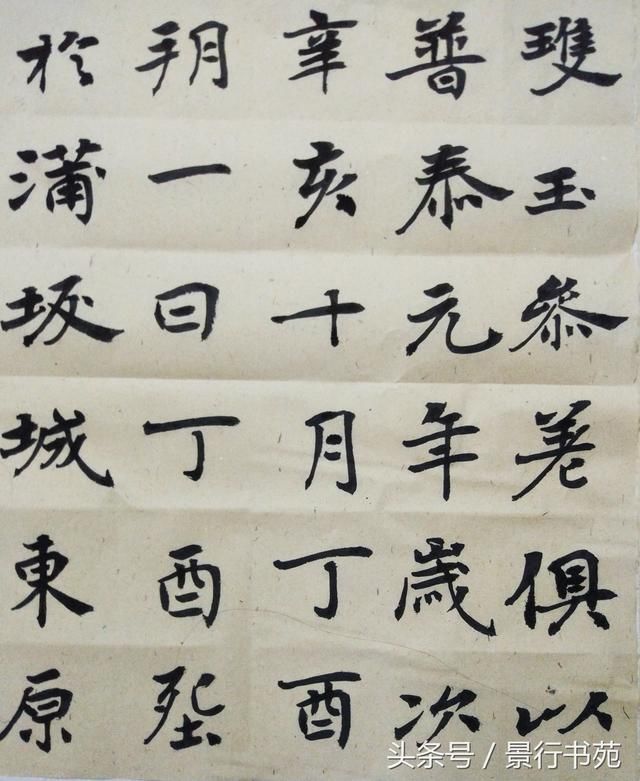 雙玉參差俱以
普泰元年歲次
辛亥十月丁酉
朔一日丁酉塟
於蒲坂城東原
头条号 / 景行书苑